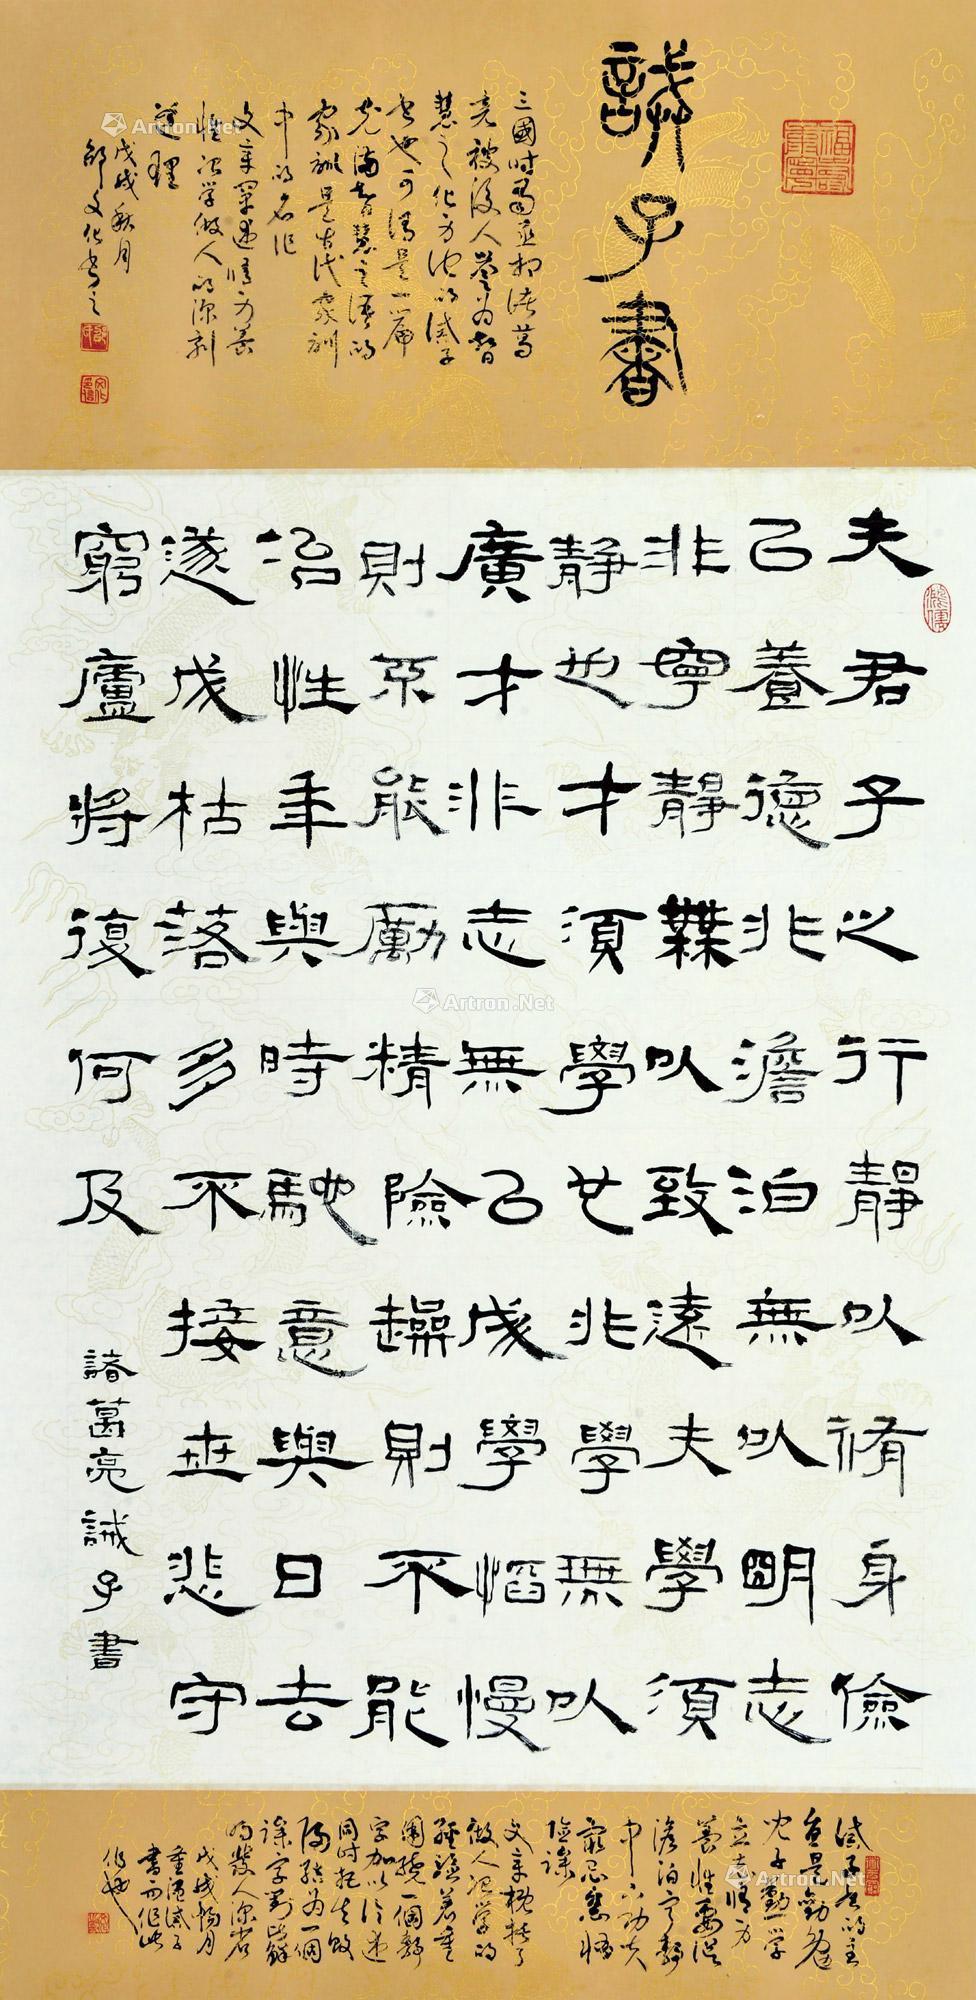 福壽康寧
誡子書
三國时蜀丞相诸葛
亮被後人誉为智
慧之化身他的诫子
书也可谓是一篇
充滿智慧之语的
家訓是古代家訓
中的名作
文章阐述修身养
性治学做人的深刻
道理
戊戌秋月
邵文化书之
夫君子之行靜以脩身儉
以養德非澹泊無以明志
非寧靜無以致遠夫學須
靜也才須學也非學無以
廣才非志無以成學慆慢
則不能勵精險躁則不能
治性年與時馳意與日去
遂成枯落多不接世悲守
窮廬將復何及
諸葛亮誡子書
诫子书的主
旨是勸勉
兒子勤学
立志修身
养性要從
澹泊宁靜
中下功夫
最忌怠惰
险躁
文章概括了
做人治学的
经验着重
围绕一個靜
字加以论述
同时把失敗
归结为一個
躁字對比鲜
明發人深省
戊戌暢月
重读诫子
書而作此
Artron.Net
Artron.Net
Artron.Net
Artron.Net
Artron.Net